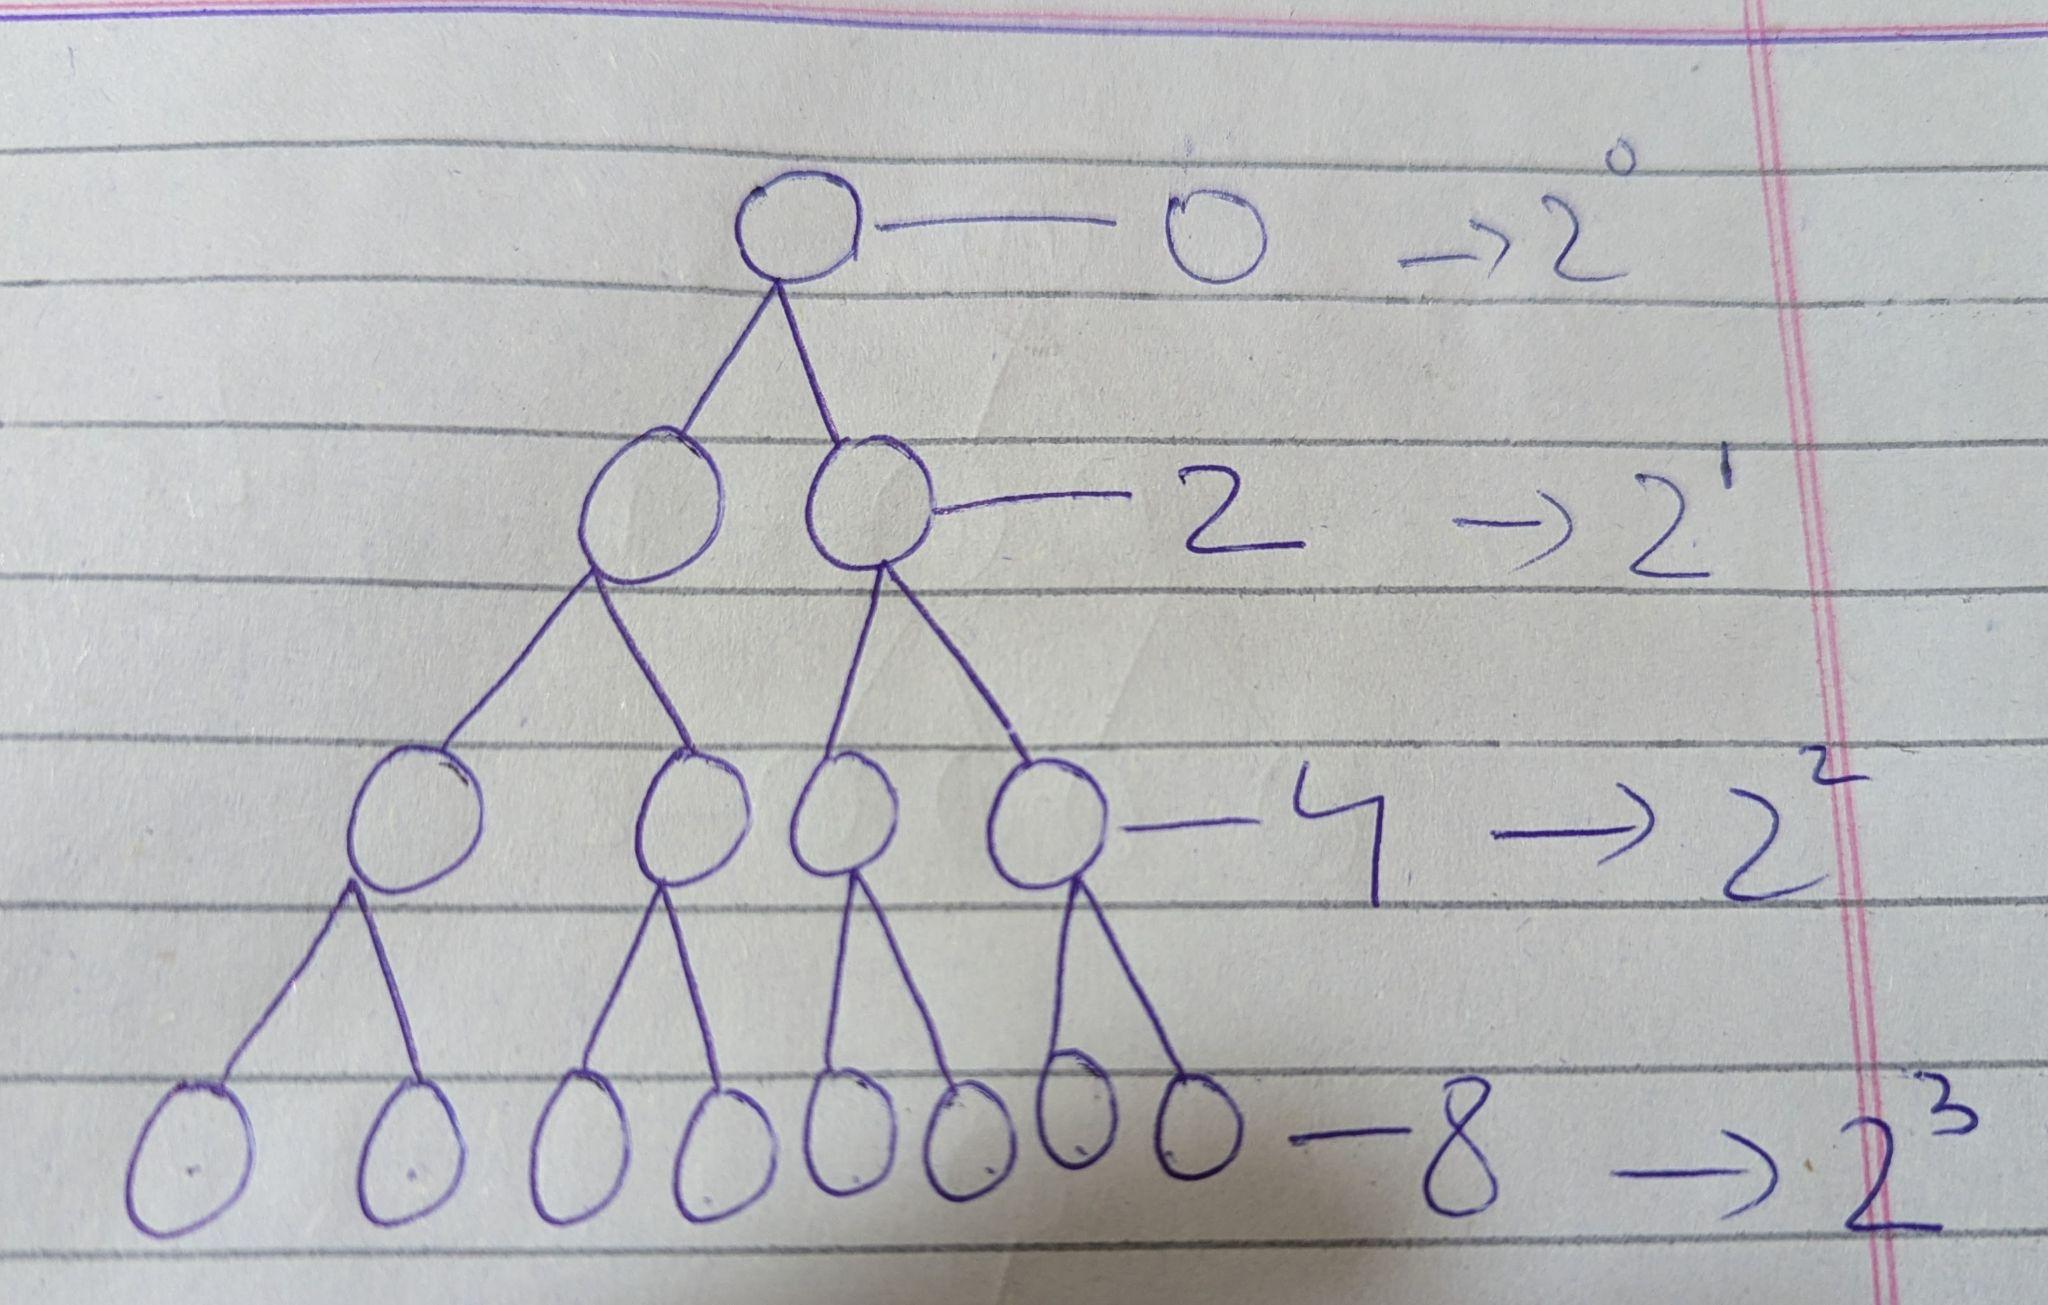 0 → 2⁰
2 → 2¹
4 → 2²
8 → 2³